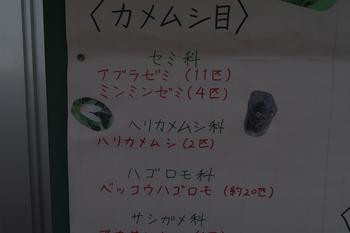 〈カメムシ目〉
セミ科
アブラゼミ(11匹)
ミンミンゼミ(4匹)
ヘリカメムシ科
ハリカメムシ(2匹)
ハゴロモ科
ベッコウハゴロモ(約20匹)
サシガメ科